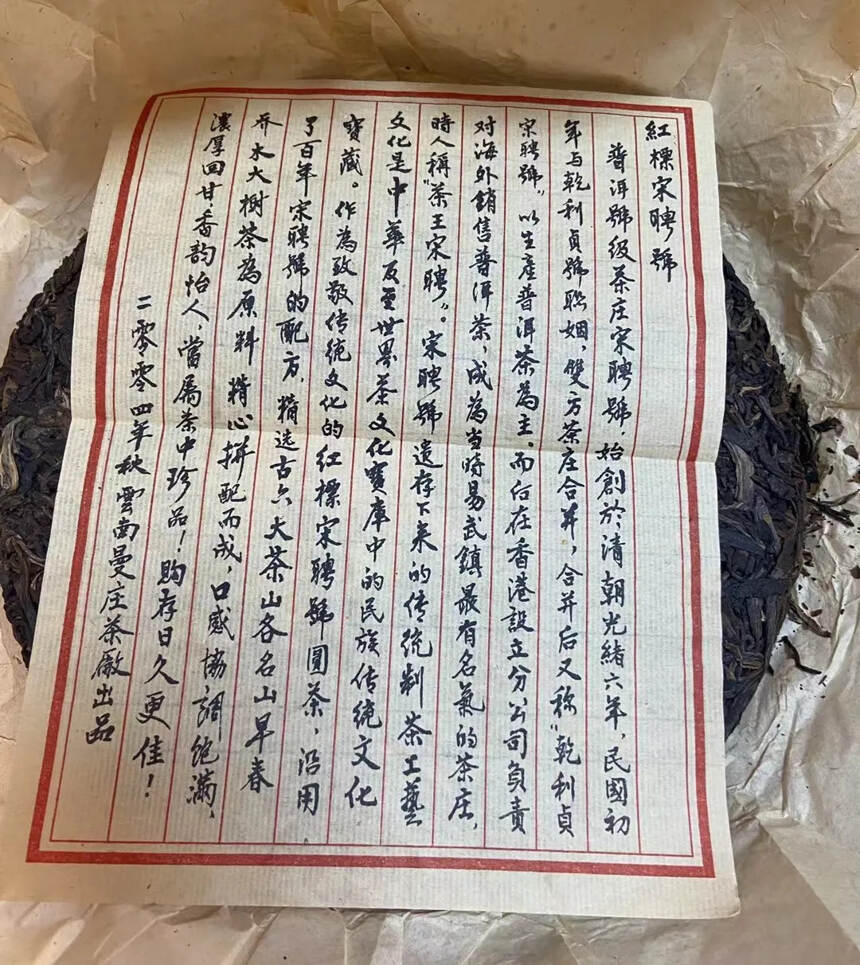 紅標宋聘號
普洱號級茶庄宋聘號，始創於清朝光緒六年，民國初
年与乾利貞號联姻，雙方茶庄合并，合并后又称“乾利貞
宋聘號”以生產普洱茶為主。而后在香港設立分公司負责
对海外銷售普洱茶，成為当時易武鎮最有名氣的茶庄，
時人稱“茶王宋聘”。宋聘號遺存下来的传统制茶工藝
文化是中華及至世界茶文化寶庫中的民族传統文化
寶藏。作為致敬传統文化的紅標宋聘號圓茶，沿用
了百年宋聘號的配方，精选古六大茶山各名山早春
乔木大樹茶為原料精心拼配而成，口感協調飽滿，
濃厚回甘香韵怡人，當屬茶中珍品！购存日久更佳！
二零零四年秋雲南曼庄茶廠出品